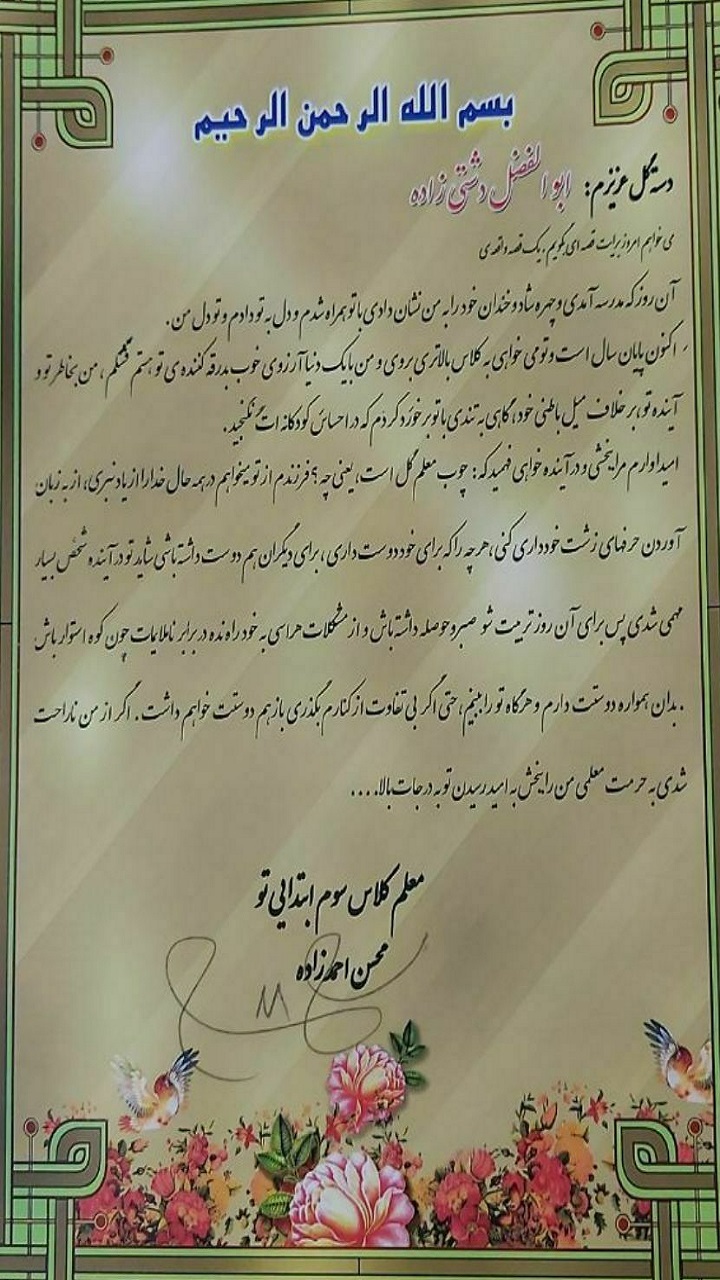 بسم الله الرحمن الرحیم
دسته گل عزیزم: ابوالفضل دشتی زاده
می خواهم امروز برایت قصه ای بگویم. یک قصه واقعی
آن روز که مدرسه آمدی و چهره شاد و خندان خود را به من نشان دادی با تو همراه شدم و دل به تو دادم و تو دل من.
اکنون پایان سال است و تو می خواهی به کلاس بالاتری بروی و من با یک دنیا آرزوی خوب بدرقه کننده ی تو هستم قشنگم ، من بخاطر تو و
آینده تو، بر خلاف میل باطنی خود، گاهی به تندی با تو برخورد کردم که در احساس کودکانه ات نگنجید.
امیداوارم مرا ببخشی و در آینده خواهی فهمید که: چوب معلم گل است، یعنی چه؟ فرزندم از تو میخواهم در همه حال خدا را از یاد نبری، از به زبان
آوردن حرفهای زشت خودداری کنی، هر چه را که برای خود دوست داری ، برای دیگران هم دوست داشته باشی شاید تو در آینده شخص بسیار
مهمی شدی پس برای آن روز تربیت شو صبر و حوصله داشته باش و از مشکلات هراسی به خود راه نده در برابر ناملایمات چون کوه استوار باش
. بدان همواره دوستت دارم و هرگاه تو را ببینم، حتی اگر بی تفاوت از کنارم بگذری باز هم دوستت خواهم داشت. اگر از من ناراحت
شدی به حرمت معلمی من را ببخش به امید رسیدن تو به درجات بالا....
معلم کلاس سوم ابتدایی تو
محسن احمدزاده